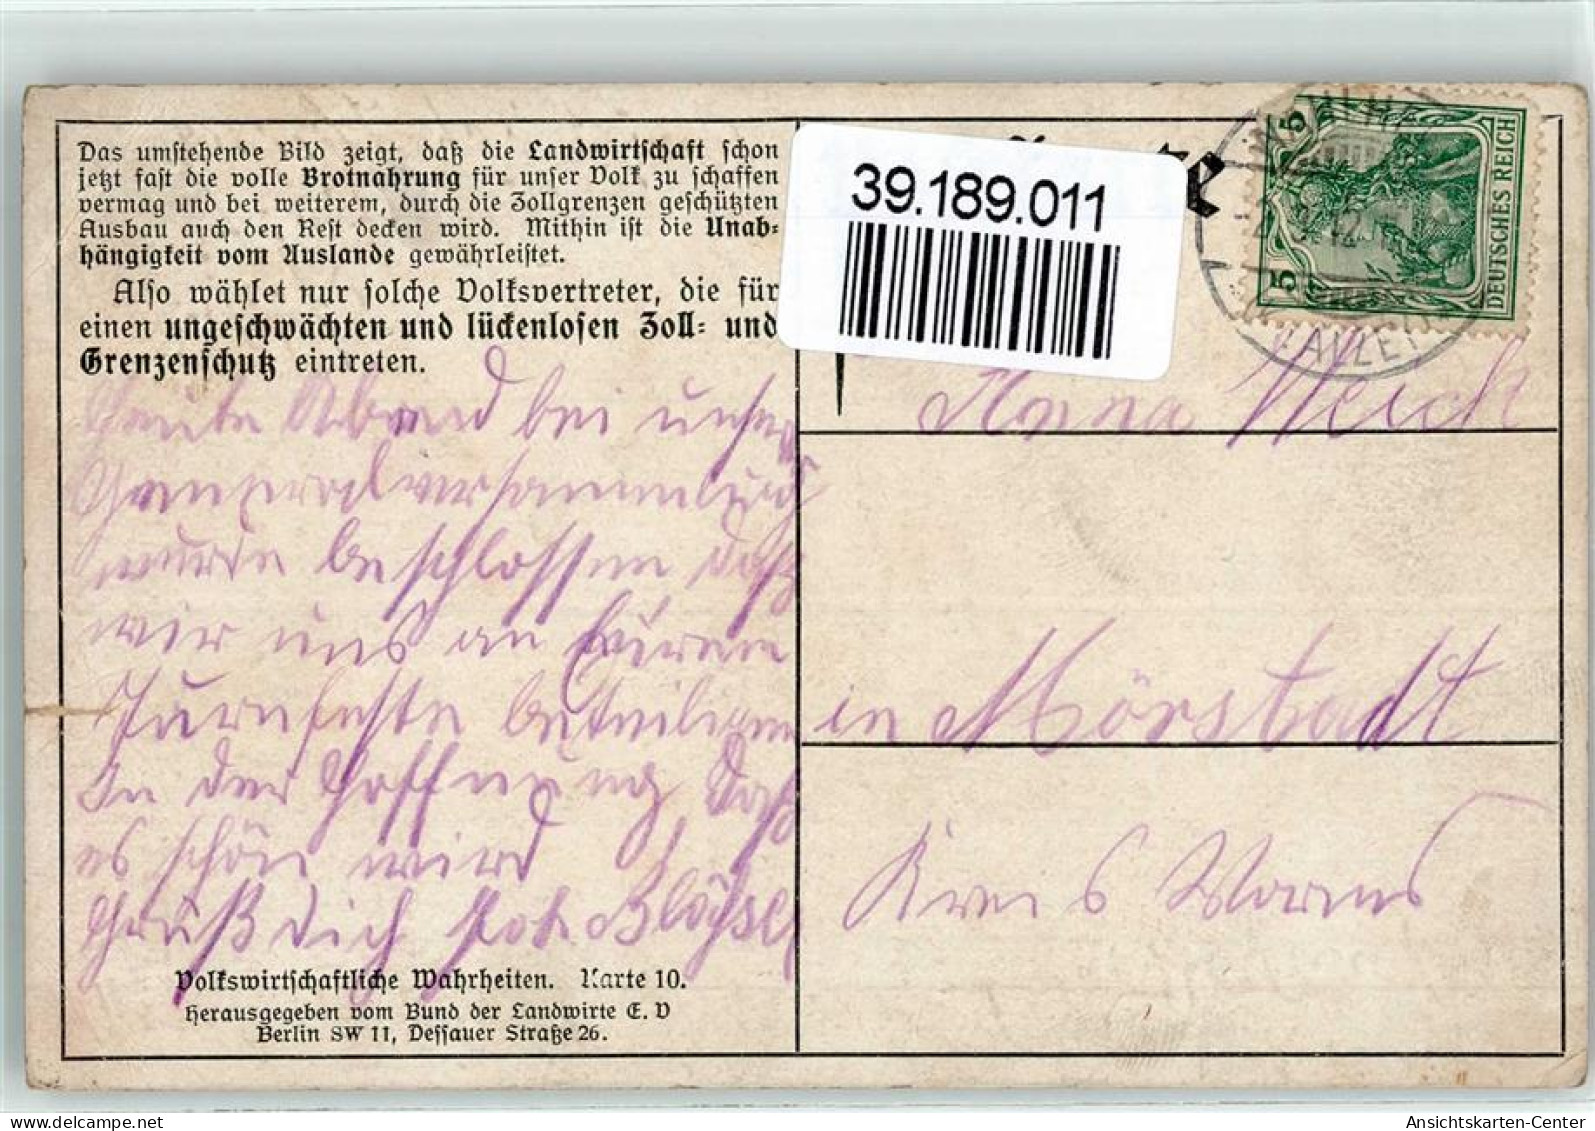 Das umstehende Bild zeigt, daß die Landwirtschaft schon
jetzt fast die volle Brotnahrung für unser Volk zu schaffen
vermag und bei weiterem, durch die Zollgrenzen geschützten
Ausbau auch den Rest decken wird. Mithin ist die Unab-
hängigkeit vom Auslande gewährleistet.
Also wählet nur solche Volksvertreter, die für
einen ungeschwächten und lückenlosen Zoll- und
Grenzenschutz eintreten.
Heute Abend bei unser
Generalversammlung
wurde beschlossen daß
wir uns an Eurem
Turnfeste beteiligen
In der Hoffnung daß
es schön wird
Grüß Dich
Volkswirtschaftliche Wahrheiten. Karte 10.
Herausgegeben vom Bund der Landwirte E. V
Berlin SW 11, Dessauer Straße 26.
39.189.011
5
5
DEUTSCHES REICH
Anna
in Mörstadt
Kreis Worms
Ansichtskarten-Center